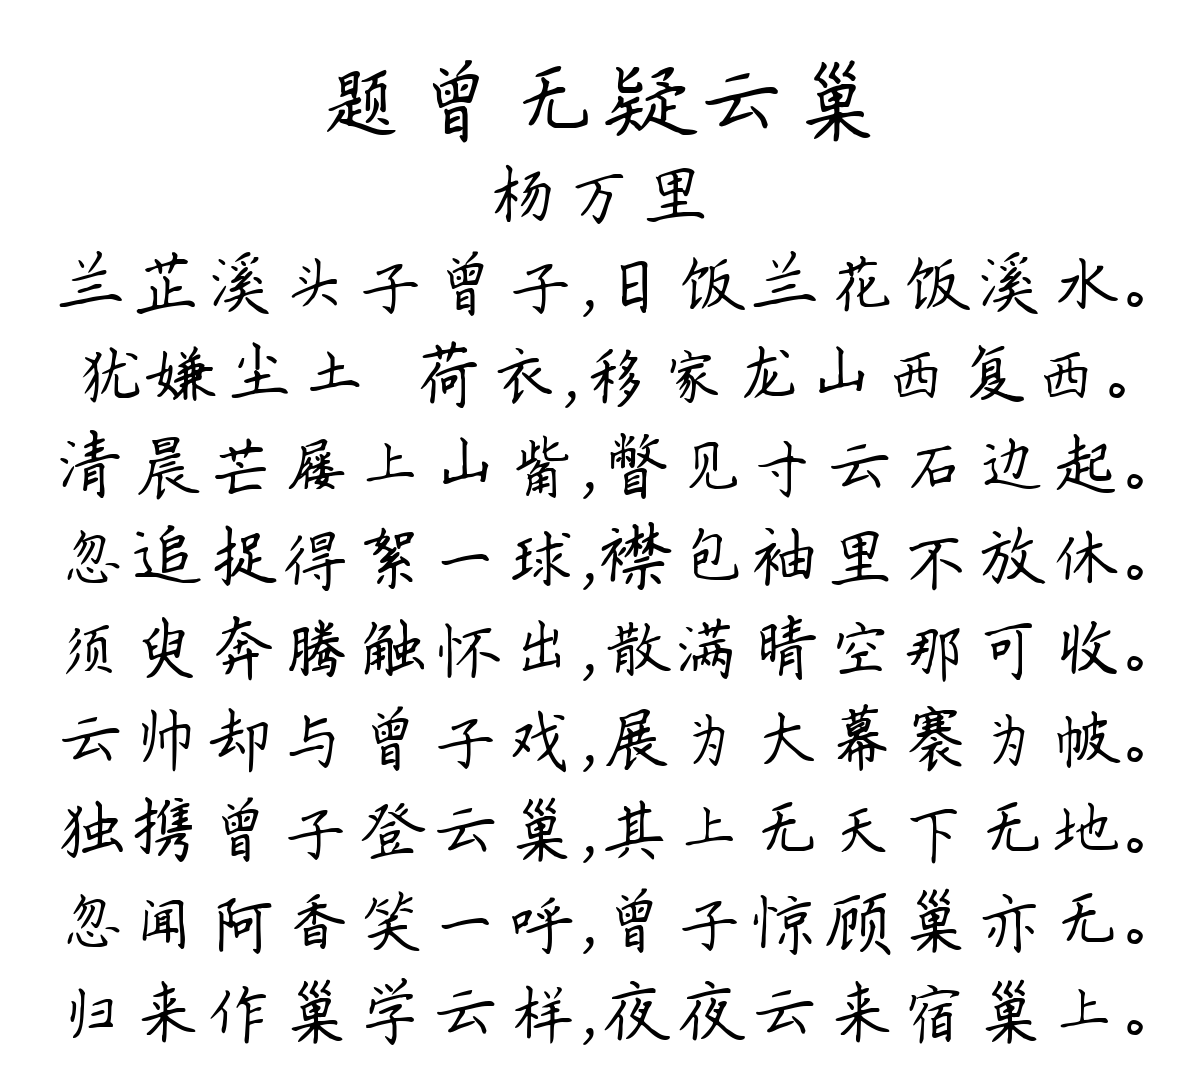 题曾无疑云巢
杨万里
兰芷溪头子曾子,日饭兰花饭溪水。
犹嫌尘土 荷衣,移家龙山西复西。
清晨芒屦上山觜,瞥见寸云石边起。
忽追捉得絮一球,襟包袖里不放休。
须臾奔腾触怀出,散满晴空那可收。
云帅却与曾子戏,展为大幕褰为帔。
独携曾子登云巢,其上无天下无地。
忽闻阿香笑一呼,曾子惊顾巢亦无。
归来作巢学云样,夜夜云来宿巢上。